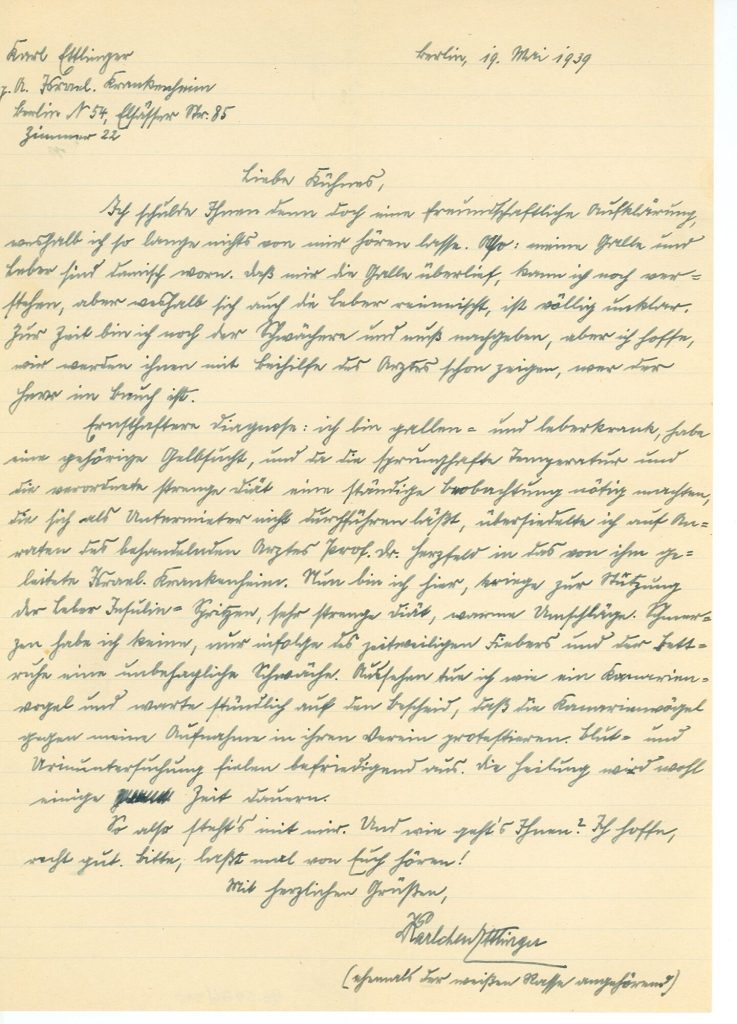 Karl Ettlinger
z. A. Israel. Krankenheim
Berlin N 54, Elsässer Str. 85
Zimmer 22
Berlin, 19. Mai 1939
Liebe Kühnes,
Ich schulde Ihnen denn doch eine freundschaftliche Aufklärung,
weshalb ich so lange nichts von mir hören lasse. Also: meine Galle und
Leber sind damisch worn. Daß mir die Galle überlief, kann ich noch ver=
stehen, aber weshalb sich auch die Leber reinmischt, ist völlig unklar.
Zur Zeit bin ich noch der Schwächere und muß nachgeben, aber ich hoffe,
wir werden ihnen mit Beihilfe des Arztes schon zeigen, wer der
Herr im Bauch ist.
Ernsthaftere Diagnose: ich bin gallen= und leberkrank, habe
eine gehörige Gelbsucht, und da die sprunghafte Temperatur und
die verordnete strenge Diät eine ständige Beobachtung nötig machten,
die sich als Untermieter nicht durchführen läßt, übersiedelte ich auf An=
raten des behandelnden Arztes Prof. Dr. Herzfeld in das von ihm ge=
leitete Israel. Krankenheim. Nun bin ich hier, kriege zur Stützung
der Leber Insulin=Spritzen, sehr strenge Diät, warme Umschläge. Schmer=
zen habe ich keine, nur infolge des zeitweiligen Fiebers und der Bett=
ruhe eine unbehagliche Schwäche. Aussehen tue ich wie ein Kanarien=
vogel und warte stündlich auf den Bescheid, daß die Kanarienvögel
gegen meine Aufnahme in ihren Verein protestieren. Blut= und
Urinuntersuchung fielen befriedigend aus. Die Heilung wird wohl
einige Zeit dauern.
So also steht's mit mir. Und wie geht's Ihnen? Ich hoffe,
recht gut. Bitte, laßt mal von Euch hören!
Mit herzlichen Grüßen,
Karlchen Ettlinger
(ehemals der weißen Rasse angehörend)